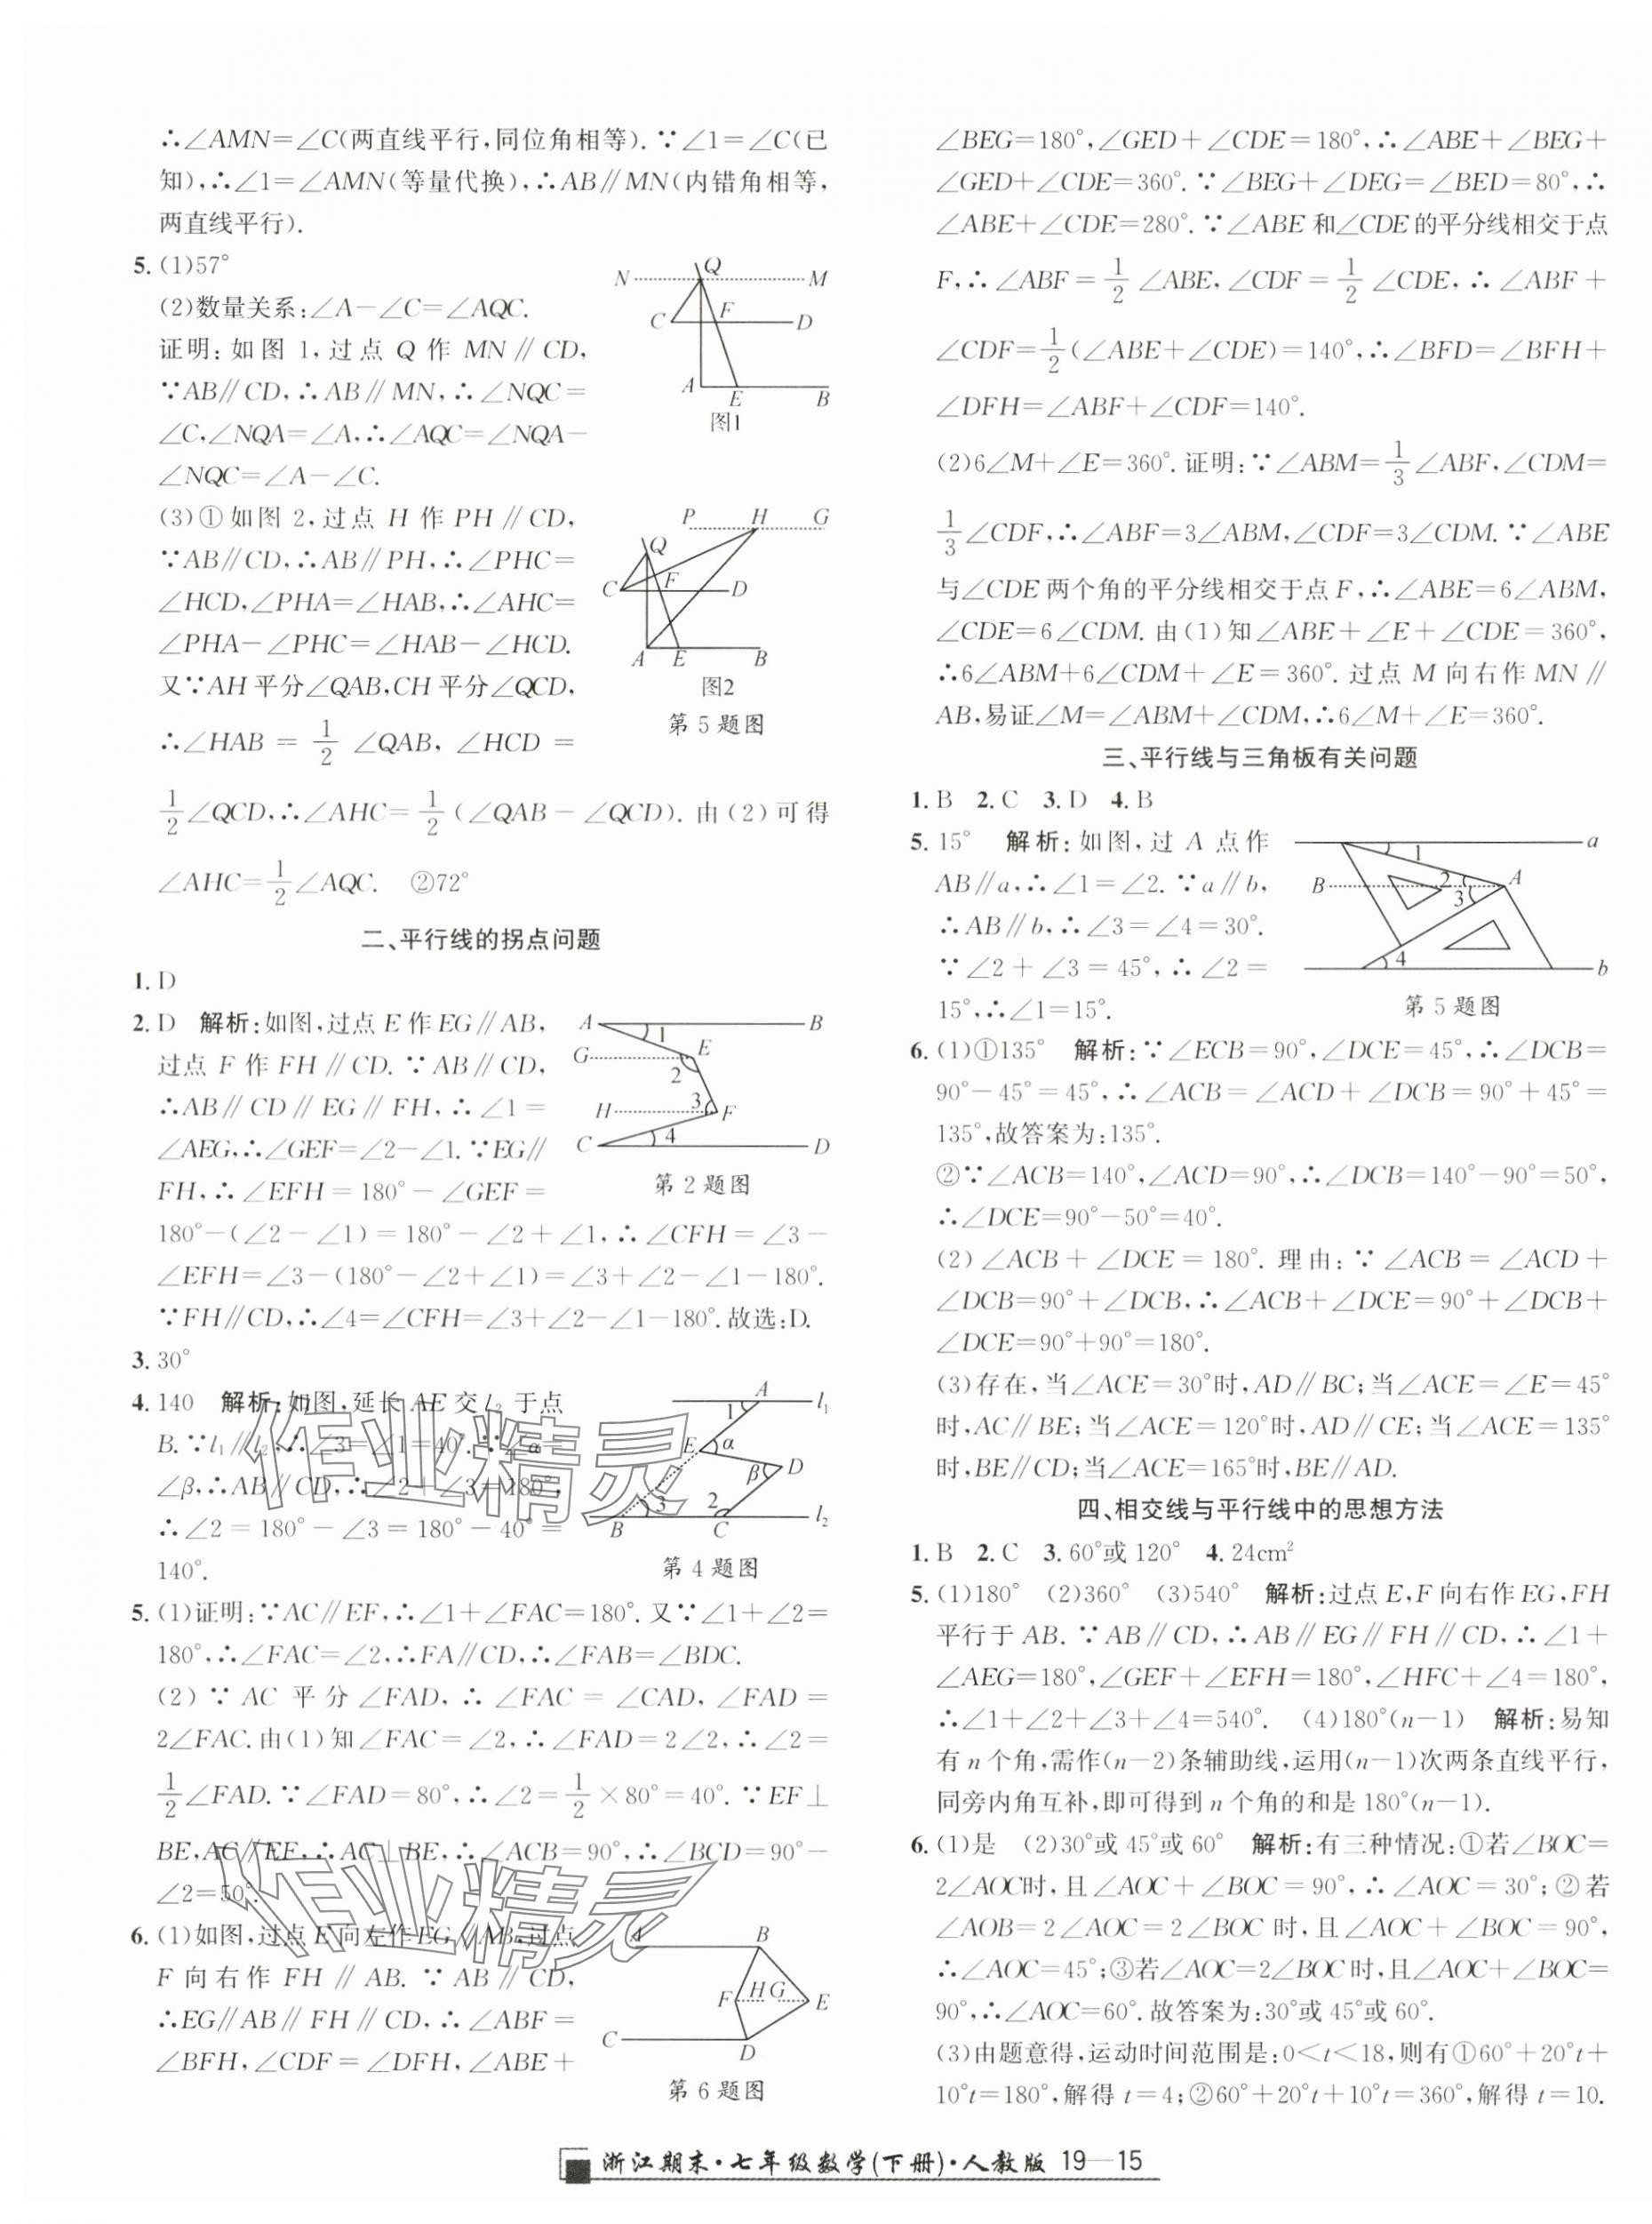 ∴∠AMN=∠C(两直线平行,同位角相等).∵∠1=∠C(已
知),∴∠1=∠AMN(等量代换),∴AB∥MN(内错角相等,
两直线平行).
5.(1)57°
(2)数量关系:∠A-∠C=∠AQC.
证明:如图1,过点Q作MN∥CD,
∵AB∥CD,∴AB∥MN,∴∠NQC=
∠C,∠NQA=∠A,∴∠AQC=∠NQA-
∠NQC=∠A-∠C.
N Q M
C F D
A E B
图1
(3)①如图2,过点H作PH∥CD,
∵AB∥CD,∴AB∥PH,∴∠PHC=
∠HCD,∠PHA=∠HAB,∴∠AHC=
∠PHA-∠PHC=∠HAB-∠HCD.
又∵AH平分∠QAB,CH平分∠QCD,
∴∠HAB=1/2∠QAB,∠HCD=
1/2∠QCD,∴∠AHC=1/2(∠QAB-∠QCD).由(2)可得
∠AHC=1/2∠AQC. ②72°
P H G
Q
C F D
A E B
图2
第5题图
二、平行线的拐点问题
1.D
2.D 解析:如图,过点E作EG∥AB,
过点F作FH∥CD.∵AB∥CD,
∴AB∥CD∥EG∥FH,∴∠1=
∠AEG,∴∠GEF=∠2-∠1.∵EG∥
FH,∴∠EFH=180°-∠GEF=
180°-(∠2-∠1)=180°-∠2+∠1,∴∠CFH=∠3-
∠EFH=∠3-(180°-∠2+∠1)=∠3+∠2-∠1-180°.
∵FH∥CD,∴∠4=∠CFH=∠3+∠2-∠1-180°.故选:D.
A 1 B
G E
2
H 3 F
C 4 D
第2题图
3.30°
4.140 解析:如图,延长AE交l₂于点
B.∵l₁∥l₂,∴∠3=∠1=40°.∵∠α=
∠β,∴AB∥CD,∴∠2+∠3=180°,
∴∠2=180°-∠3=180°-40°=
140°.
A l₁
1
E α
β D
3 2
B C l₂
第4题图
5.(1)证明:∵AC∥EF,∴∠1+∠FAC=180°.又∵∠1+∠2=
180°,∴∠FAC=∠2,∴FA∥CD,∴∠FAB=∠BDC.
(2)∵AC平分∠FAD,∴∠FAC=∠CAD,∠FAD=
2∠FAC.由(1)知∠FAC=∠2,∴∠FAD=2∠2,∴∠2=
1/2∠FAD.∵∠FAD=80°,∴∠2=1/2×80°=40°.∵EF⊥
BE,AC∥EF,∴AC⊥BE,∴∠ACB=90°,∴∠BCD=90°-
∠2=50°.
6.(1)如图,过点E向左作EG∥AB,过点
F向右作FH∥AB.∵AB∥CD,
∴EG∥AB∥FH∥CD,∴∠ABF=
∠BFH,∠CDF=∠DFH,∠ABE+
A B
F H G E
C D
第6题图
∠BEG=180°,∠GED+∠CDE=180°,∴∠ABE+∠BEG+
∠GED+∠CDE=360°.∵∠BEG+∠DEG=∠BED=80°,∴
∠ABE+∠CDE=280°.∵∠ABE和∠CDE的平分线相交于点
F,∴∠ABF=1/2∠ABE,∠CDF=1/2∠CDE,∴∠ABF+
∠CDF=1/2(∠ABE+∠CDE)=140°,∴∠BFD=∠BFH+
∠DFH=∠ABF+∠CDF=140°.
(2)6∠M+∠E=360°.证明:∵∠ABM=1/3∠ABF,∠CDM=
1/3∠CDF,∴∠ABF=3∠ABM,∠CDF=3∠CDM.∵∠ABE
与∠CDE两个角的平分线相交于点F,∴∠ABE=6∠ABM,
∠CDE=6∠CDM.由(1)知∠ABE+∠E+∠CDE=360°,
∴6∠ABM+6∠CDM+∠E=360°.过点M向右作MN∥
AB,易证∠M=∠ABM+∠CDM,∴6∠M+∠E=360°.
三、平行线与三角板有关问题
1.B 2.C 3.D 4.B
5.15° 解析:如图,过A点作
AB∥a,∴∠1=∠2.∵a∥b,
∴AB∥b,∴∠3=∠4=30°.
∵∠2+∠3=45°,∴∠2=
15°,∴∠1=15°.
1 a
B 2 A
3
4 b
第5题图
6.(1)①135° 解析:∵∠ECB=90°,∠DCE=45°,∴∠DCB=
90°-45°=45°,∴∠ACB=∠ACD+∠DCB=90°+45°=
135°,故答案为:135°.
②∵∠ACB=140°,∠ACD=90°,∴∠DCB=140°-90°=50°,
∴∠DCE=90°-50°=40°.
(2)∠ACB+∠DCE=180°.理由:∵∠ACB=∠ACD+
∠DCB=90°+∠DCB,∴∠ACB+∠DCE=90°+∠DCB+
∠DCE=90°+90°=180°.
(3)存在,当∠ACE=30°时,AD∥BC;当∠ACE=∠E=45°
时,AC∥BE;当∠ACE=120°时,AD∥CE;当∠ACE=135°
时,BE∥CD;当∠ACE=165°时,BE∥AD.
四、相交线与平行线中的思想方法
1.B 2.C 3.60°或120° 4.24cm²
5.(1)180° (2)360° (3)540° 解析:过点E,F向右作EG,FH
平行于AB.∵AB∥CD,∴AB∥EG∥FH∥CD,∴∠1+
∠AEG=180°,∠GEF+∠EFH=180°,∠HFC+∠4=180°,
∴∠1+∠2+∠3+∠4=540°. (4)180°(n-1) 解析:易知
有n个角,需作(n-2)条辅助线,运用(n-1)次两条直线平行,
同旁内角互补,即可得到n个角的和是180°(n-1).
6.(1)是 (2)30°或45°或60° 解析:有三种情况:①若∠BOC=
2∠AOC时,且∠AOC+∠BOC=90°,∴∠AOC=30°;②若
∠AOB=2∠AOC=2∠BOC时,且∠AOC+∠BOC=90°,
∴∠AOC=45°;③若∠AOC=2∠BOC时,且∠AOC+∠BOC=
90°,∴∠AOC=60°.故答案为:30°或45°或60°.
(3)由题意得,运动时间范围是:0<t<18,则有①60°+20°t+
10°t=180°,解得t=4;②60°+20°t+10°t=360°,解得t=10.
作业精灵
作业精灵
浙江期末·七年级数学(下册)·人教版 19—15